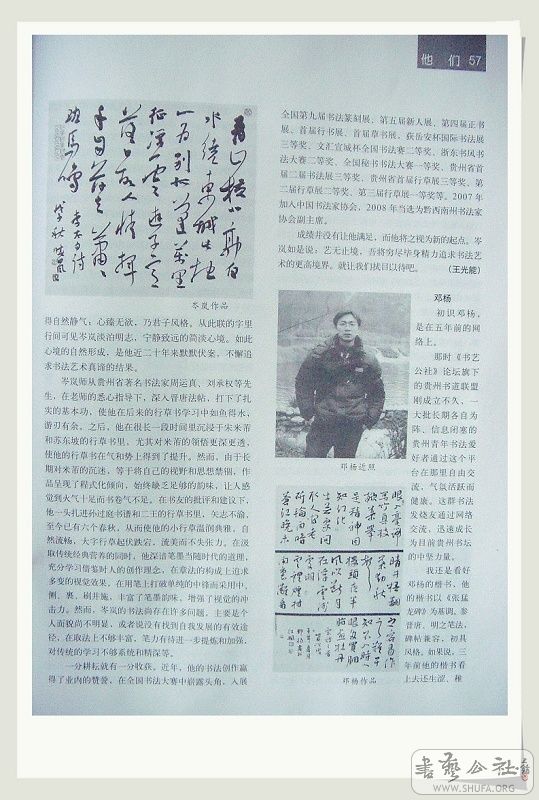 他们 57
青山横北郭白
水绕东城此地
一为别孤蓬万里
征浮云游子意
落日故人情挥
手自兹去萧萧
班马鸣
岑岚作品
得自然静气；心臻无欲，乃君子风格。从此联的字里
行间可见岑岚淡泊明志，宁静致远的简淡心境。如此
心境的自然形成，是他近二十年来默默伏案，不懈追
求书法艺术真谛的结果。
岑岚师从贵州省著名书法家周运真、刘承权等先
生，在老师的悉心指导下，深入晋唐法帖，打下了扎
实的基本功，使他在后来的行草书学习中如鱼得水，
游刃有余。之后，他在很长一段时间里沉浸于朱米芾
和苏东坡的行草书里，尤其对米芾的领悟更深更透，
使他的行草书在气和势上得到了提升。然而，由于长
期对米芾的沉迷，等于将自己的视野和思想禁锢，作
品呈现了程式化倾向，始终缺乏足够的韵味，让人感
觉到火气十足而书卷气不足。在书友的批评和建议下，
他一头扎进孙过庭书谱和二王的行草书里，矢志不渝，
至今已有六个春秋，从而使他的小行草温润典雅，自
然流畅，大字行草书跌宕起伏，流美而不失张力。在汲
取传统经典营养的同时，他深谙笔墨当随时代的道理，
充分学习借鉴时人的创作理念，在章法的构成上追求
多变的视觉效果，在用笔上打破单纯的中锋而采用中、
侧、裹、绞并施，丰富了笔墨的韵味，增强了视觉的冲
击力。然而，岑岚的书法尚存在许多问题，主要是个
人面貌尚不明显，或者说没有找到自我发展的有效途
径，在取法上不够丰富，笔力有待进一步提炼和加强，
对传统的学习不够系统和精深等。
一分耕耘就有一分收获。近年，他的书法创作赢
得了业内的赞誉，在全国书法大赛中崭露头角，入展
全国第九届书法篆刻展、第五届新人展、第四届正书
展、首届行书展、首届草书展、获岳安杯国际书法展
三等奖、文汇宣城杯全国书法赛二等奖、浙东书风书
法大赛二等奖、全国秘书书法大赛一等奖、贵州省首
届二届书法展三等奖、贵州省首届行草展三等奖、第
二届行草展二等奖、第三届行草展一等奖等。2007年
加入中国书法家协会，2008年当选为黔西南州书法家
协会副主席。
成绩并没有让他满足，而他将之视为新的起点。岑
岚如是说：艺无止境，吾将穷尽毕身精力追求书法艺
术的更高境界。就让我们拭目以待吧。（王光能）
邓杨近照
邓杨作品
邓杨
初识邓杨，
是在五年前的网
络上。
那时《书艺
公社》论坛旗下
的贵州书道联盟
刚成立不久，一
大批长期各自为
阵、信息闭塞的
贵州青年书法爱
好者通过这个平
台在那里自由交
流，气氛活跃而
健康。这群书法
发烧友通过网络
交流，迅速成长
为目前贵州书坛
的中坚力量。
我还是看好
邓杨的楷书，他
的楷书以《张猛
龙碑》为基调，参
晋唐、明之笔法，
碑帖兼容，初具
风格。如果说，三
年前他的楷书看
上去还生涩、稚
书艺公社
WWW.SHUFA.ORG